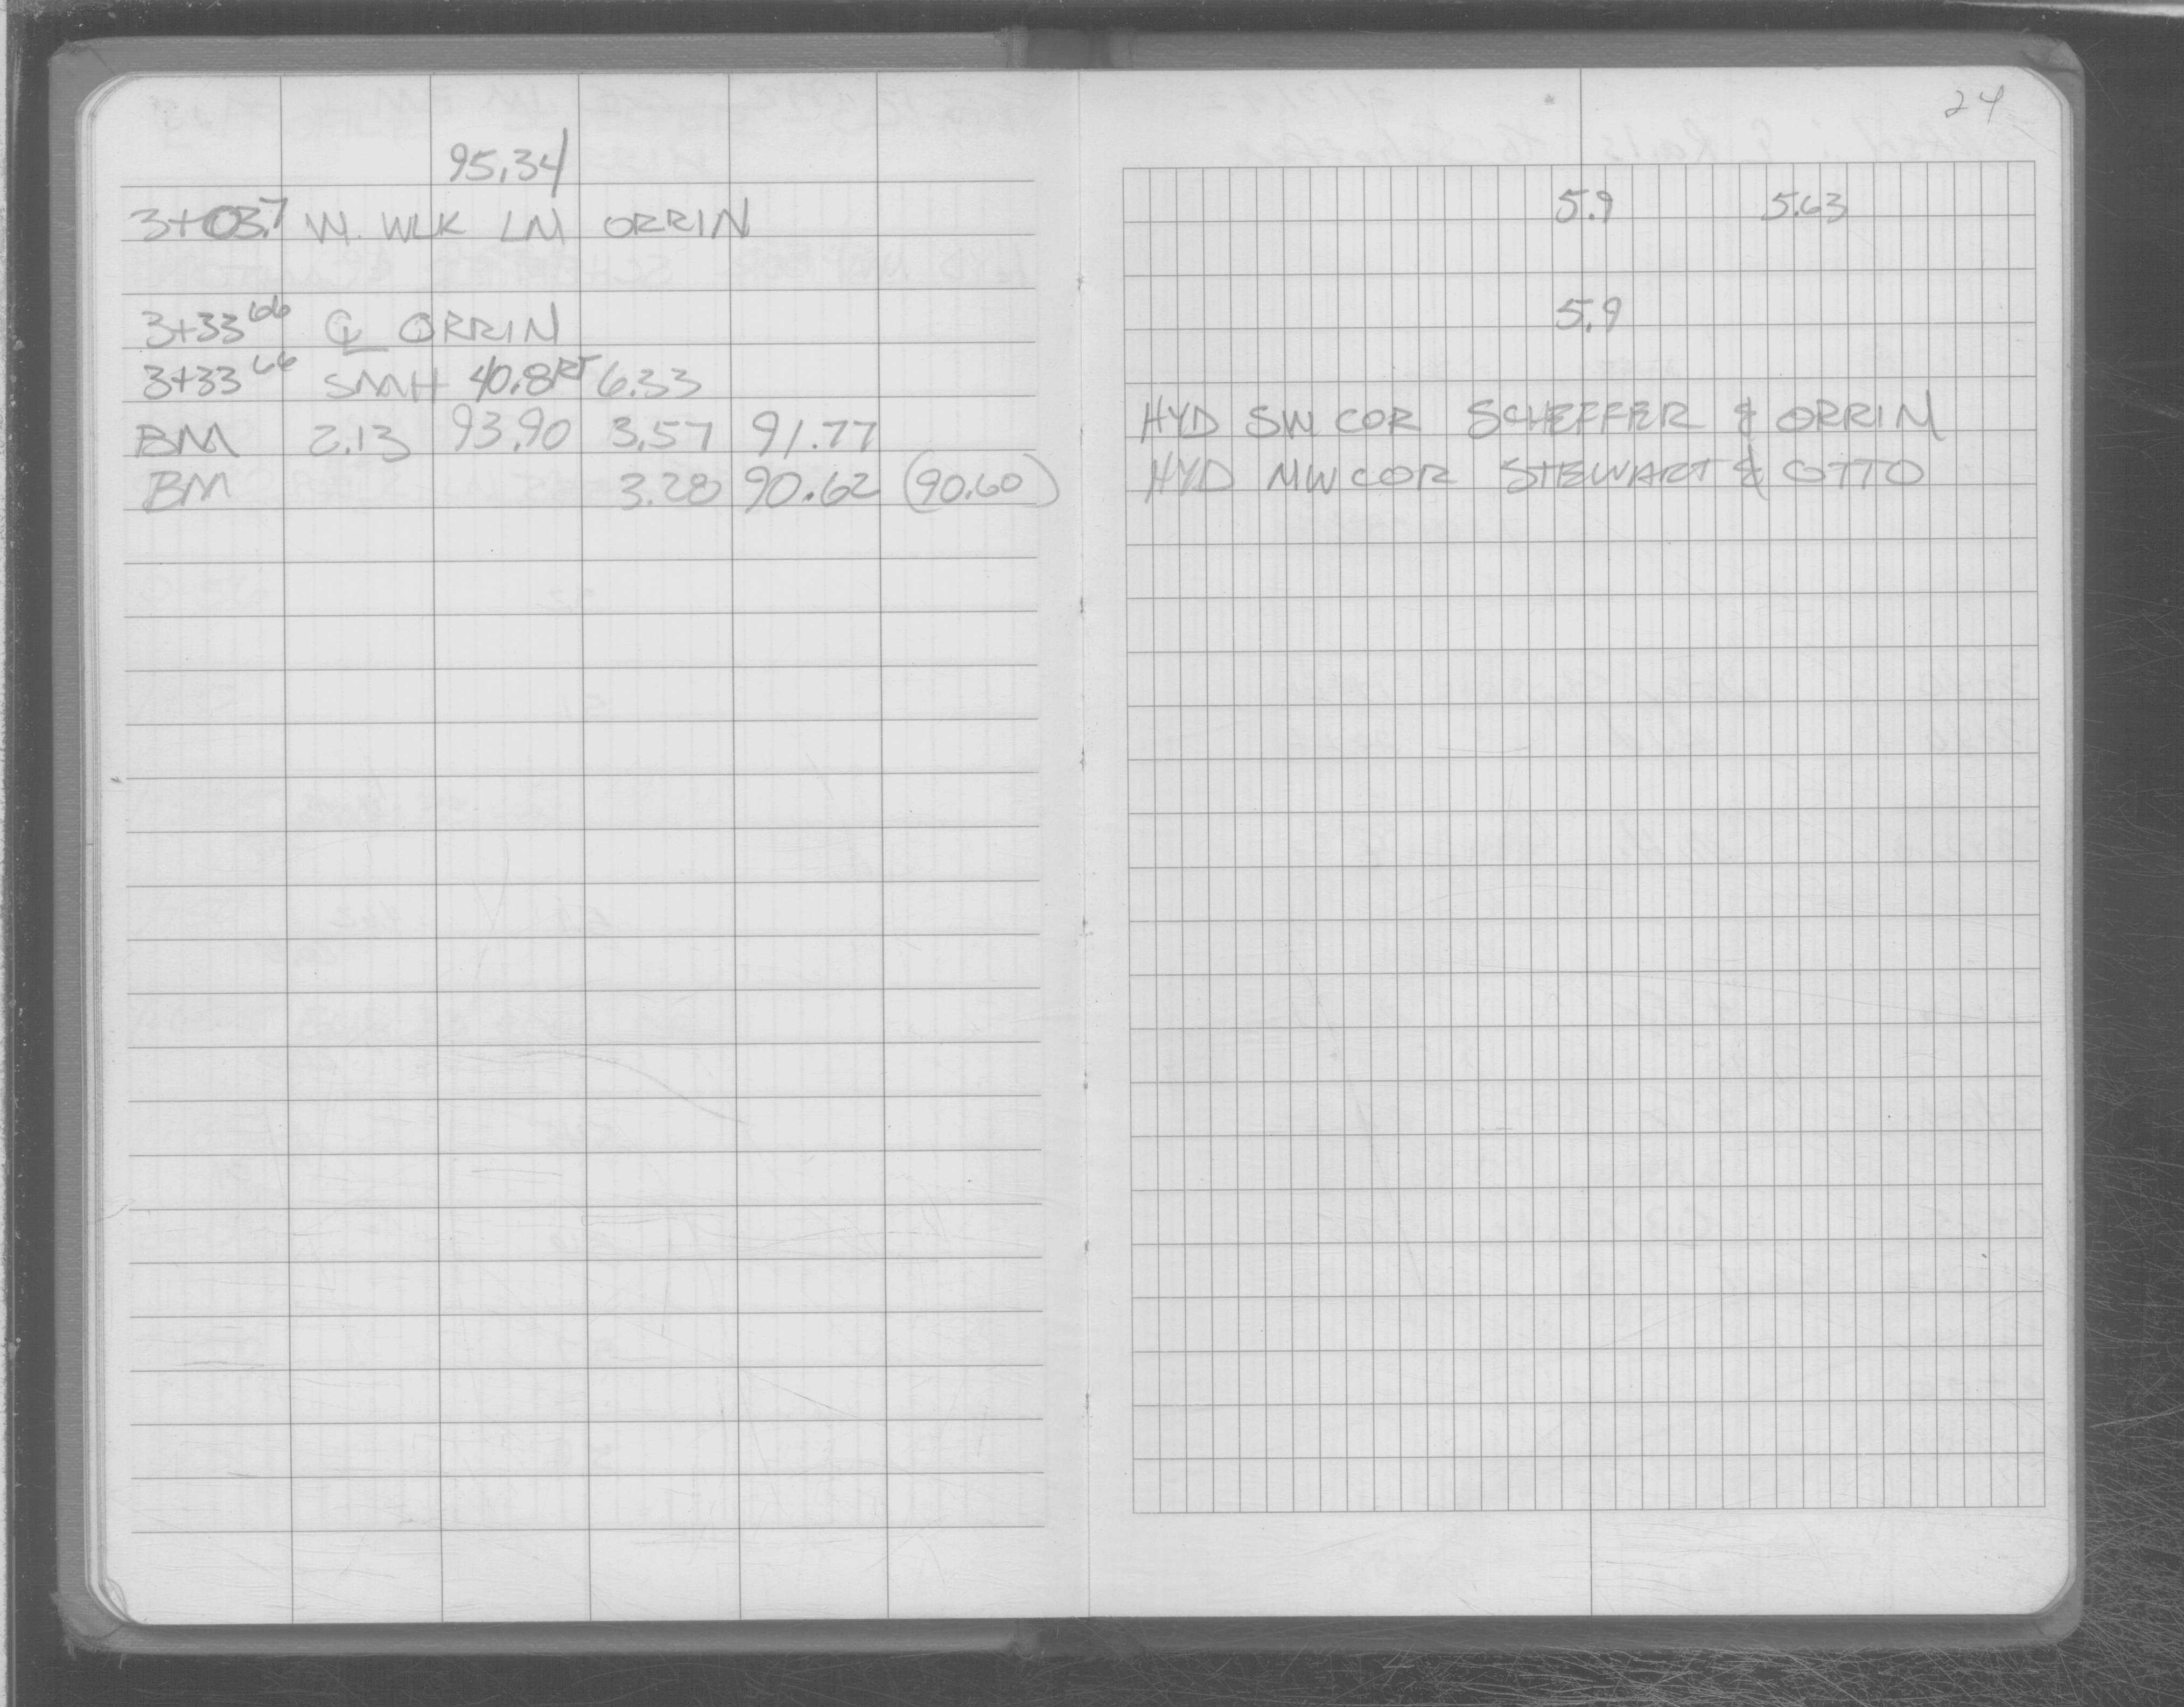 24
95.34
3+03.7 W. WLK LN ORRIN 5.9 5.63
3+33 66 ℄ ORRIN 5.9
3+33 66 SMH 40.8 RT 6.33
BM 2.13 93.90 3.57 91.77 HYD SW COR SCHEFFER & ORRIN
BM 3.28 90.62 (90.60) HYD NW COR STEWART & OTTO